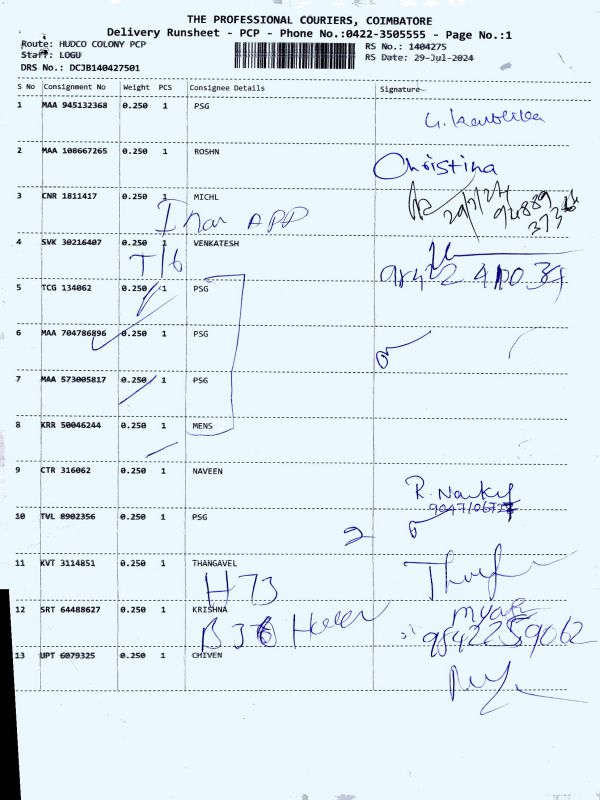 THE PROFESSIONAL COURIERS, COIMBATORE
Delivery Runsheet - PCP - Phone No.:0422-3505555 - Page No.:1
Route: HUDCO COLONY PCP
RS No.: 1404275
Staff: LOGU
RS Date: 29-Jul-2024
DRS No.: DCJB140427501
S No Consignment No Weight PCS Consignee Details Signature
1 MAA 945132368 0.250 1 PSG
2 MAA 108667265 0.250 1 ROSHN
Christina
3 CNR 1811417 0.250 1 MICHL
29/7/24
APP
4 SVK 30216407 0.250 1 VENKATESH
T/6
5 TCG 134062 0.250 1 PSG
6 MAA 704786896 0.250 1 PSG
7 MAA 573005817 0.250 1 PSG
8 KRR 50046244 0.250 1 MENS
9 CTR 316062 0.250 1 NAVEEN
10 TVL 8902356 0.250 1 PSG
2
11 KVT 3114851 0.250 1 THANGAVEL
H 73
12 SRT 64488627 0.250 1 KRISHNA
9842259062
13 UPT 6079325 0.250 1 CHIVEN